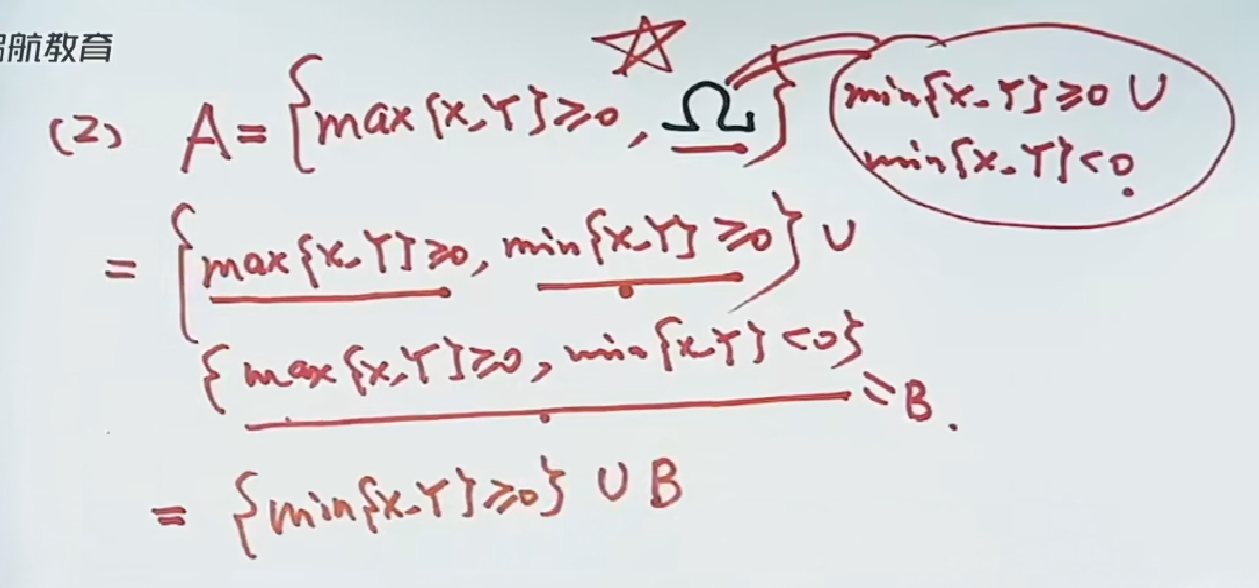 航教育
(2) A = {max{X,Y}≥0, Ω} min{X,Y}≥0 ∪
min{X,Y}<0.
= {max{X,Y}≥0, min{X,Y}≥0} ∪
{max{X,Y}≥0, min{X,Y}<0} = B.
= {min{X,Y}≥0} ∪ B